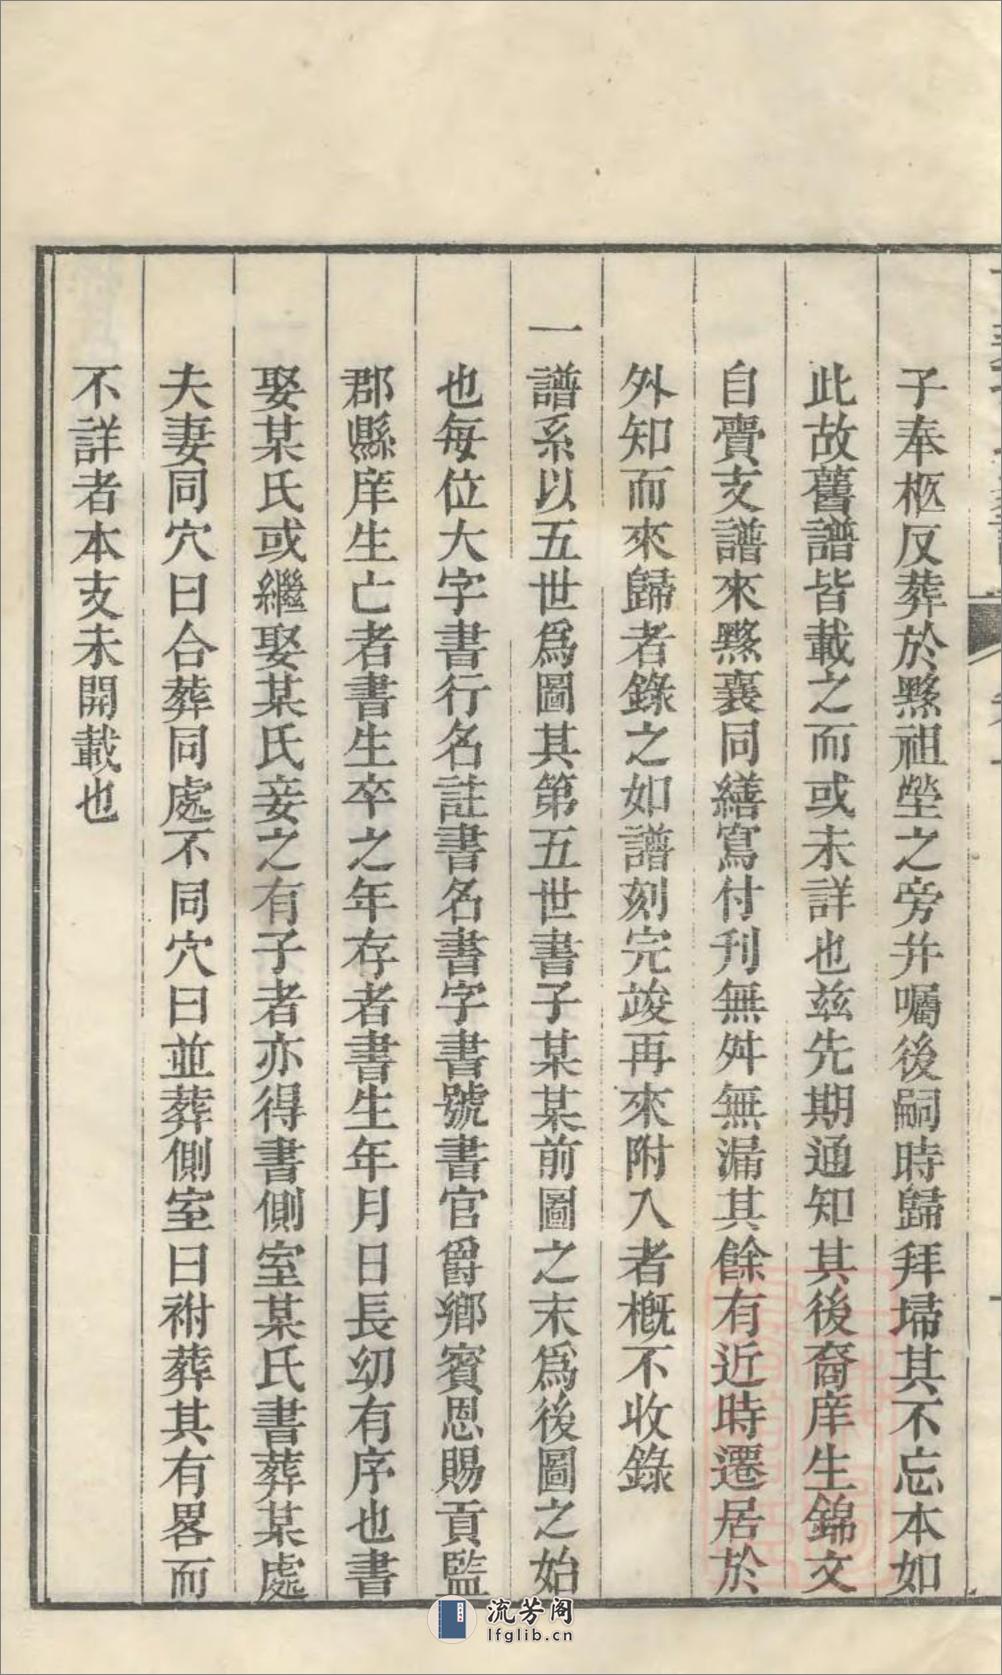 子奉柩反葬於黟祖塋之旁并囑後嗣時歸拜埽其不忘本如
此故舊譜皆載之而或未詳也兹先期通知其後裔庠生錦文
自賣支譜來黟襄同繕寫付刊無舛無漏其餘有近時遷居於
外知而來歸者錄之如譜刻完竣再來附入者槪不收錄
一譜系以五世爲圖其第五世書子某某前圖之末爲後圖之始
也每位大字書行名註書名書字書號書官爵鄉賓恩賜貢監
郡縣庠生亡者書生卒之年存者書生年月日長幼有序也書
娶某氏或繼娶某氏妾之有子者亦得書側室某氏書葬某處
夫妻同穴曰合葬同處不同穴曰並葬側室曰祔葬其有畧而
不詳者本支未開載也
流芳阁
lfglib.cn